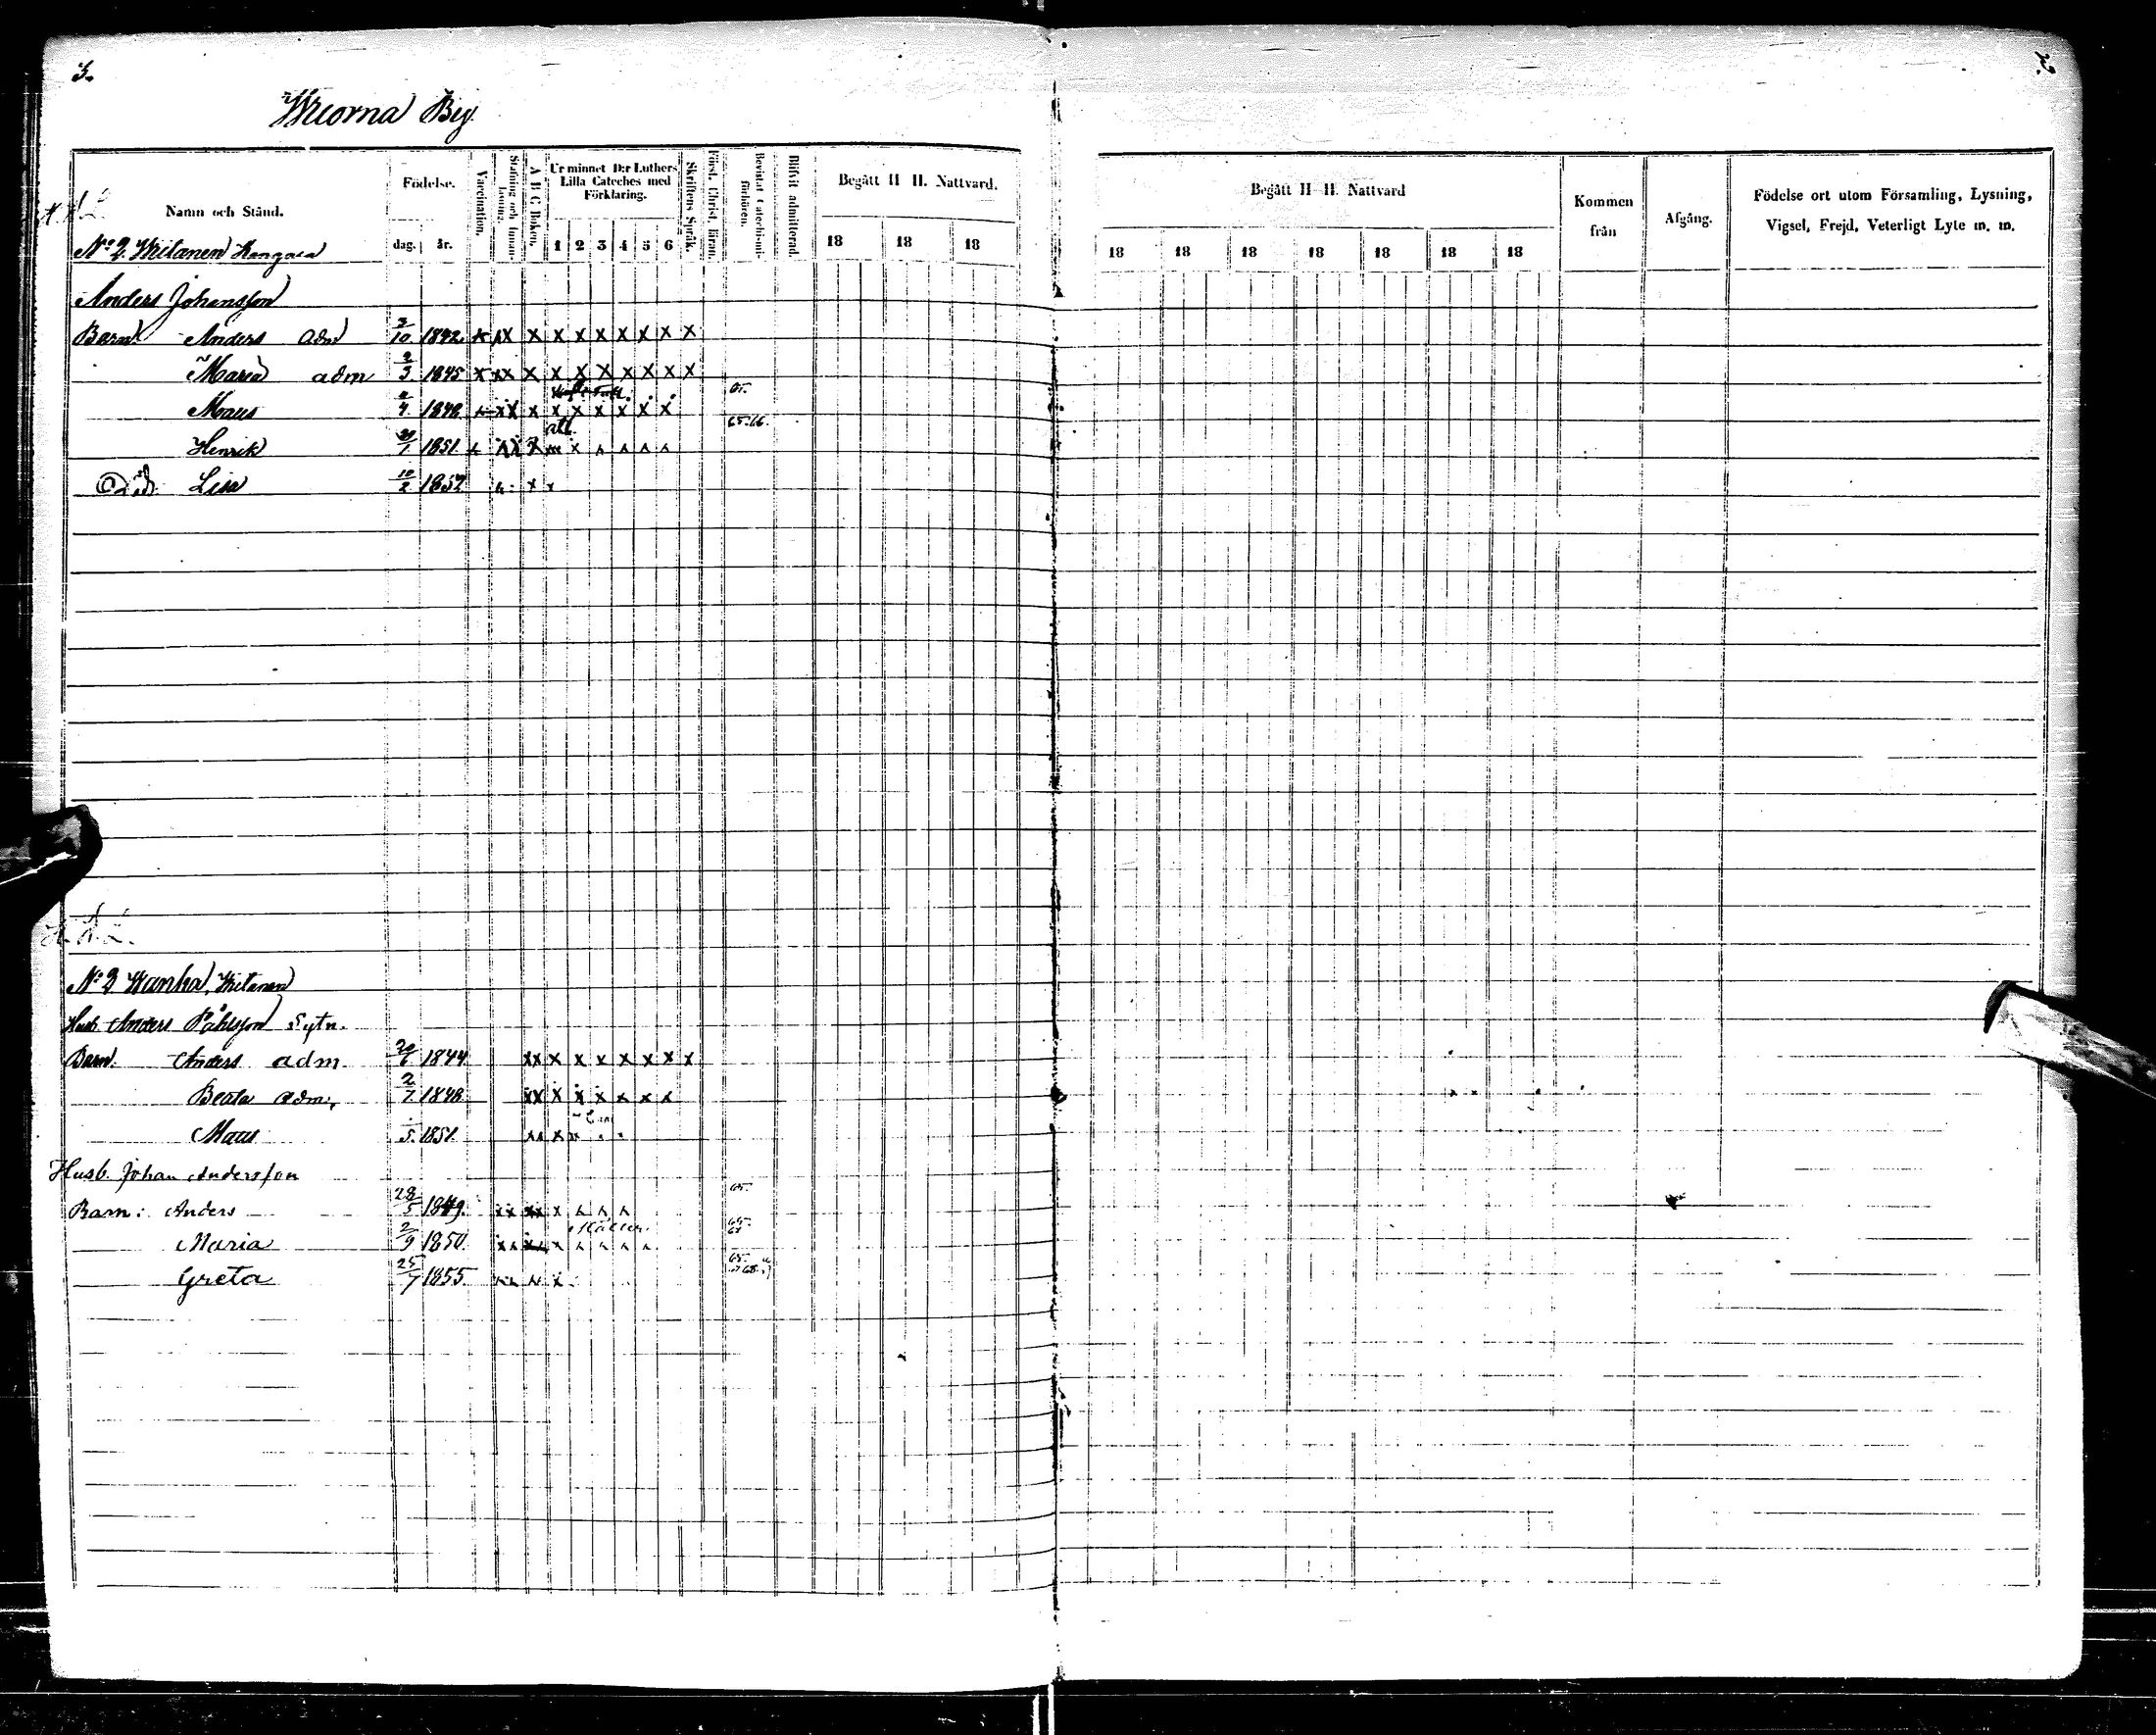 3.
3.
By
Namn och Stånd.
Födelse.
dag. år.
Vaccination.
Stafning och Innanläsning.
A B C. Boken.
Ur minnet D:r Luthers Lilla Cateches med Förklaring.
1 2 3 4 5 6
Skriftens Språk.
Först. Christ. läran.
Bevistat Catechismiförhören.
Blifvit admitterad.
Begått H H. Nattvard.
18 18 18
Begått H H. Nattvard
18 18 18 18 18 18 18
Kommen från
Afgång.
Födelse ort utom Församling, Lysning, Vigsel, Frejd, Veterligt Lyte m. m.
N:o 2.
Anders Johansson
Barn Anders adm 2/10 1842. x xx x x x x x x x x
Maria adm 2/3. 1845 x xx x x x x x x x x
65.
Maus 2/4. 1848 x xx x x x x x x x
att 65.66.
Henrik 1851
Död. Lisa 10/2 1857
H. A. L.
N:o 2 Wanha
Husb. Anders Påhlsson Sytn.
Barn. Anders adm. 20/6 1844. xx x x x x x x x
Beata adm. 2/7 1848 xx x x x x x x
Maus 5. 1851.
Husb. Johan Andersson
65.
Barn: Anders 28/5 1849.
Maria 2/9 1850.
65.
Greta 25/7 1855.